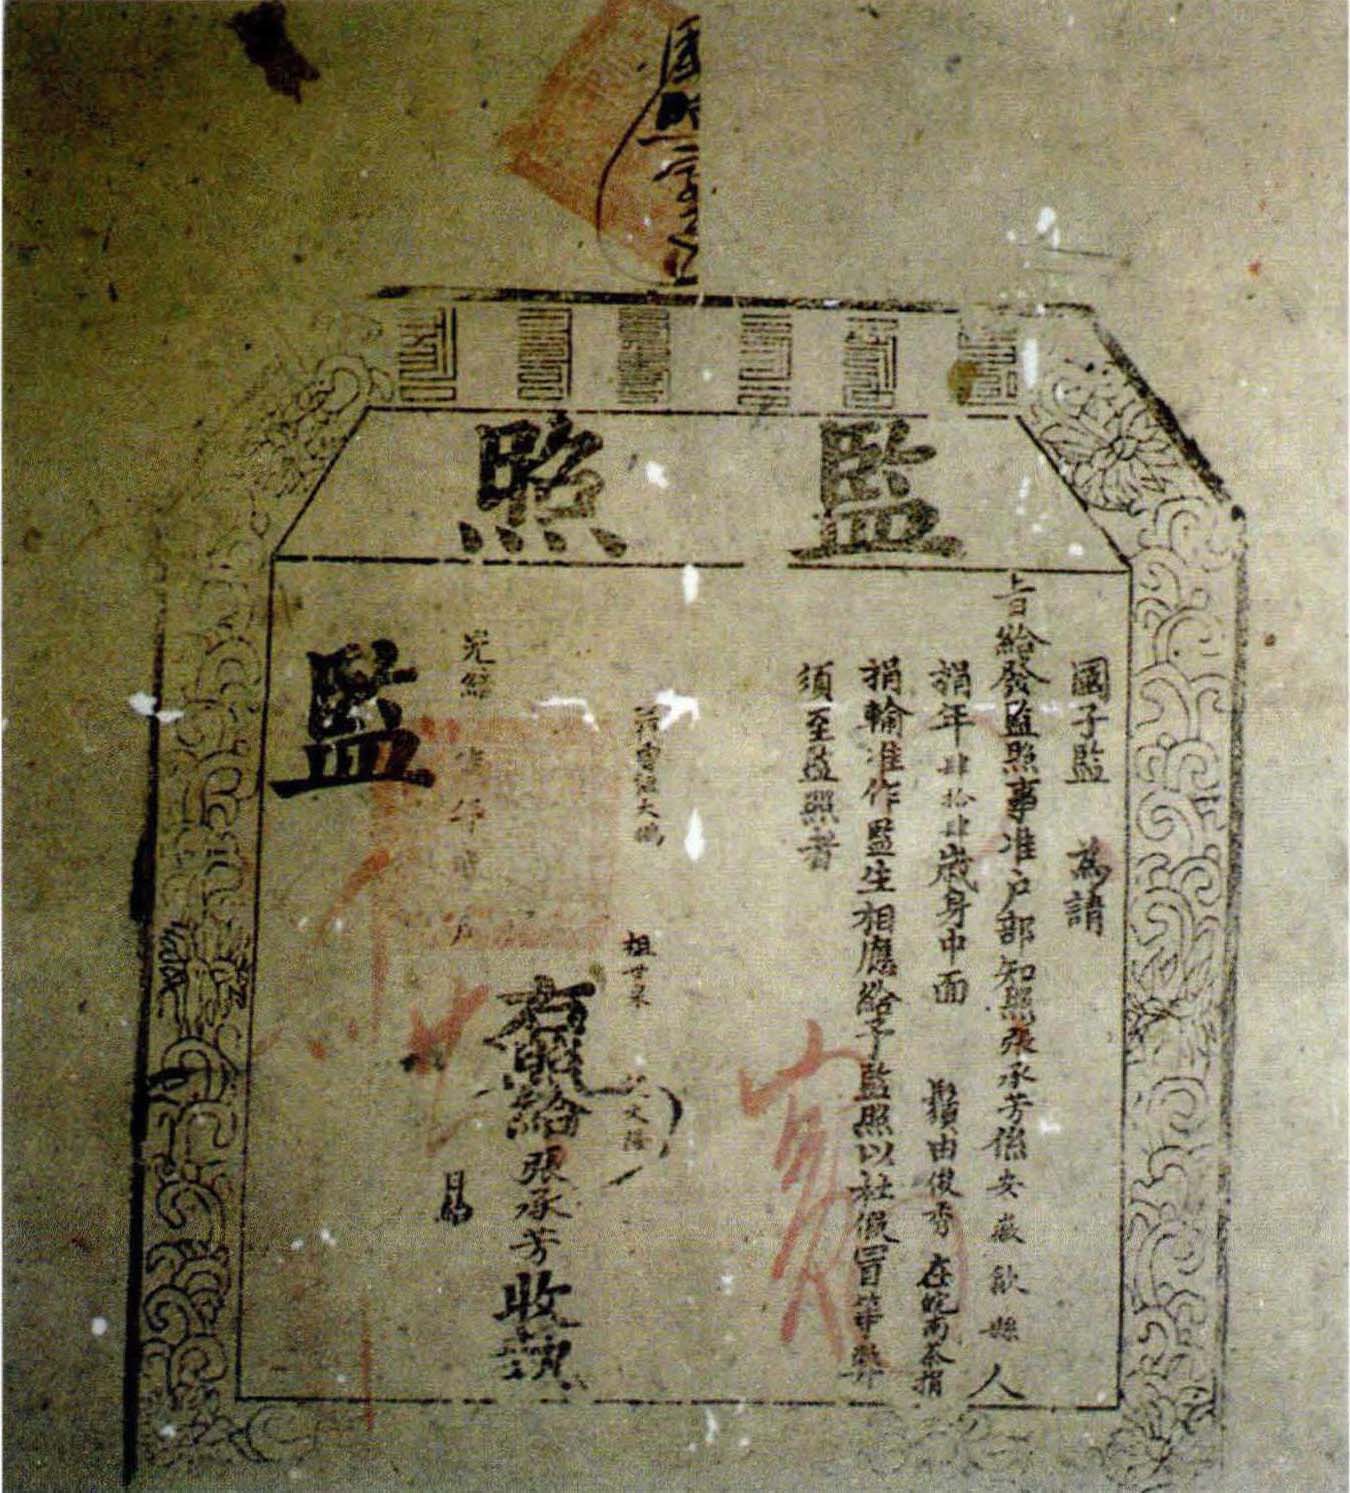 監照
國子監 為請
旨給發監照事准户部知照張承芳係安徽歙縣人
捐年肆拾肆歲身中面 鬚由俊秀在皖南茶捐
捐輸准作監生相應給予監照以杜假冒等弊
須至監照者
大鵬 祖 文
右照給張承芳收執
光緒 年 月 日
監